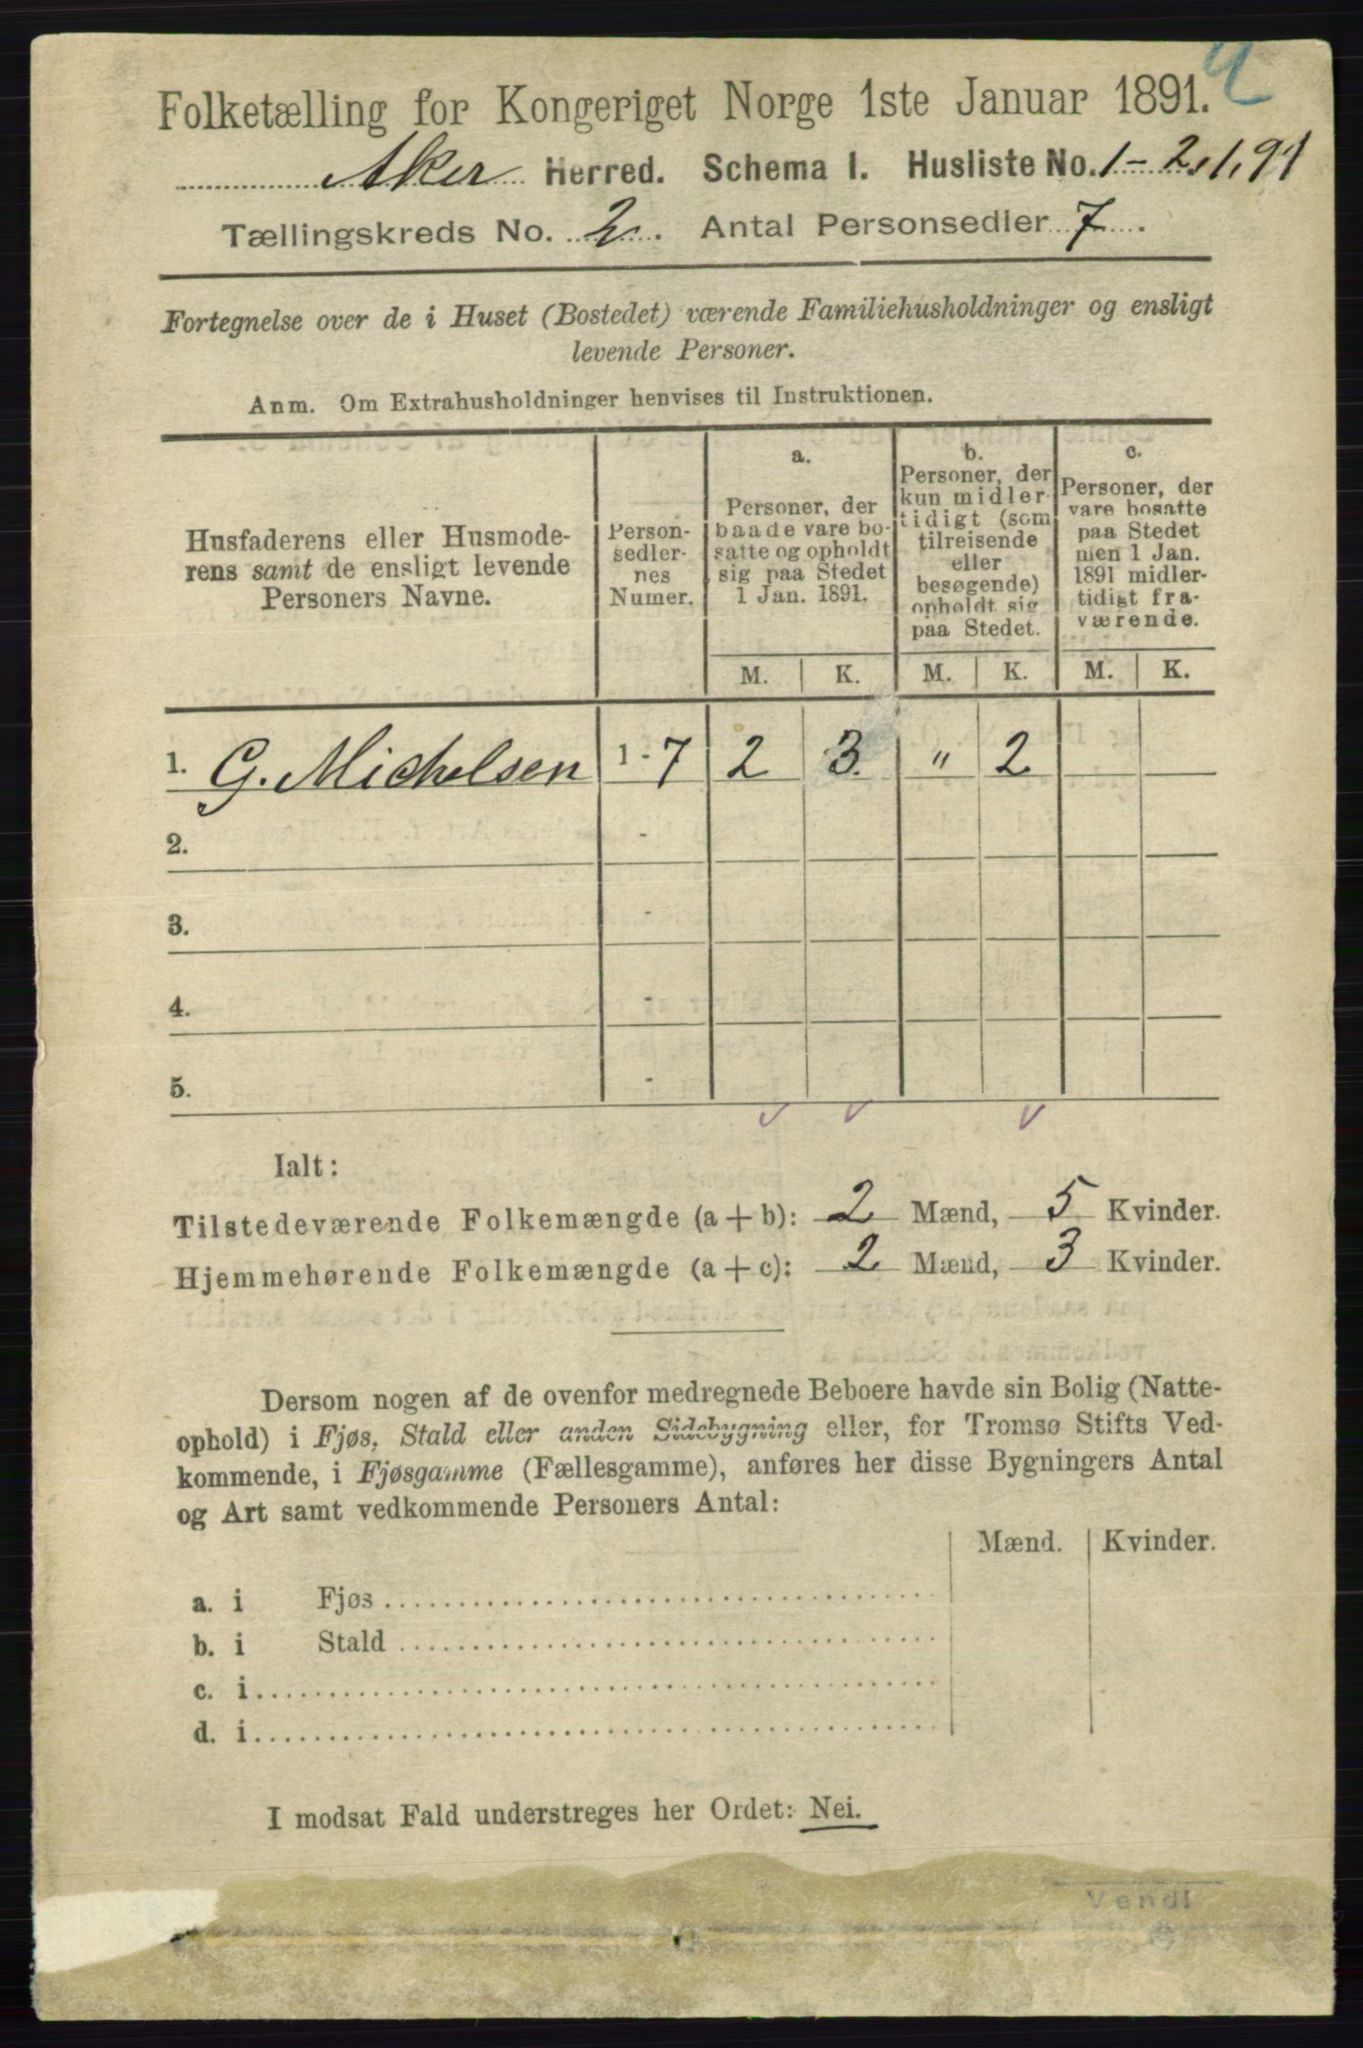 4
Folketælling for Kongeriget Norge 1ste Januar 1891.
Aker Herred. Schema I. Husliste No. 1-2.1.91
Tællingskreds No. 2. Antal Personsedler 7.
Fortegnelse over de i Huset (Bostedet) værende Familiehusholdninger og ensligt
levende Personer.
Anm. Om Extrahusholdninger henvises til Instruktionen.
Husfaderens eller Husmode-
rens samt de ensligt levende
Personers Navne.
Person-
sedler-
nes
Numer.
a.
Personer, der
baade vare bo-
satte og opholdt
sig paa Stedet
1 Jan. 1891.
b.
Personer, der
kun midler-
tidigt (som
tilreisende
eller
besøgende)
opholdt sig
paa Stedet.
c.
Personer, der
vare bosatte
paa Stedet
men 1 Jan.
1891 midler-
tidigt fra-
værende.
M. K. M. K. M. K.
1. G. Michelsen 1-7 2 3. " 2
2. -
3. -
4. -
5. -
Ialt:
Tilstedeværende Folkemængde (a + b): 2 Mænd, 5 Kvinder.
Hjemmehørende Folkemængde (a + c): 2 Mænd, 3 Kvinder.
Dersom nogen af de ovenfor medregnede Beboere havde sin Bolig (Natte-
ophold) i Fjøs, Stald eller anden Sidebygning eller, for Tromsø Stifts Ved-
kommende, i Fjøsgamme (Fællesgamme), anføres her disse Bygningers Antal
og Art samt vedkommende Personers Antal:
Mænd. Kvinder.
a. i Fjøs
b. i Stald
c. i
d. i
I modsat Fald understreges her Ordet: Nei.
Vend!